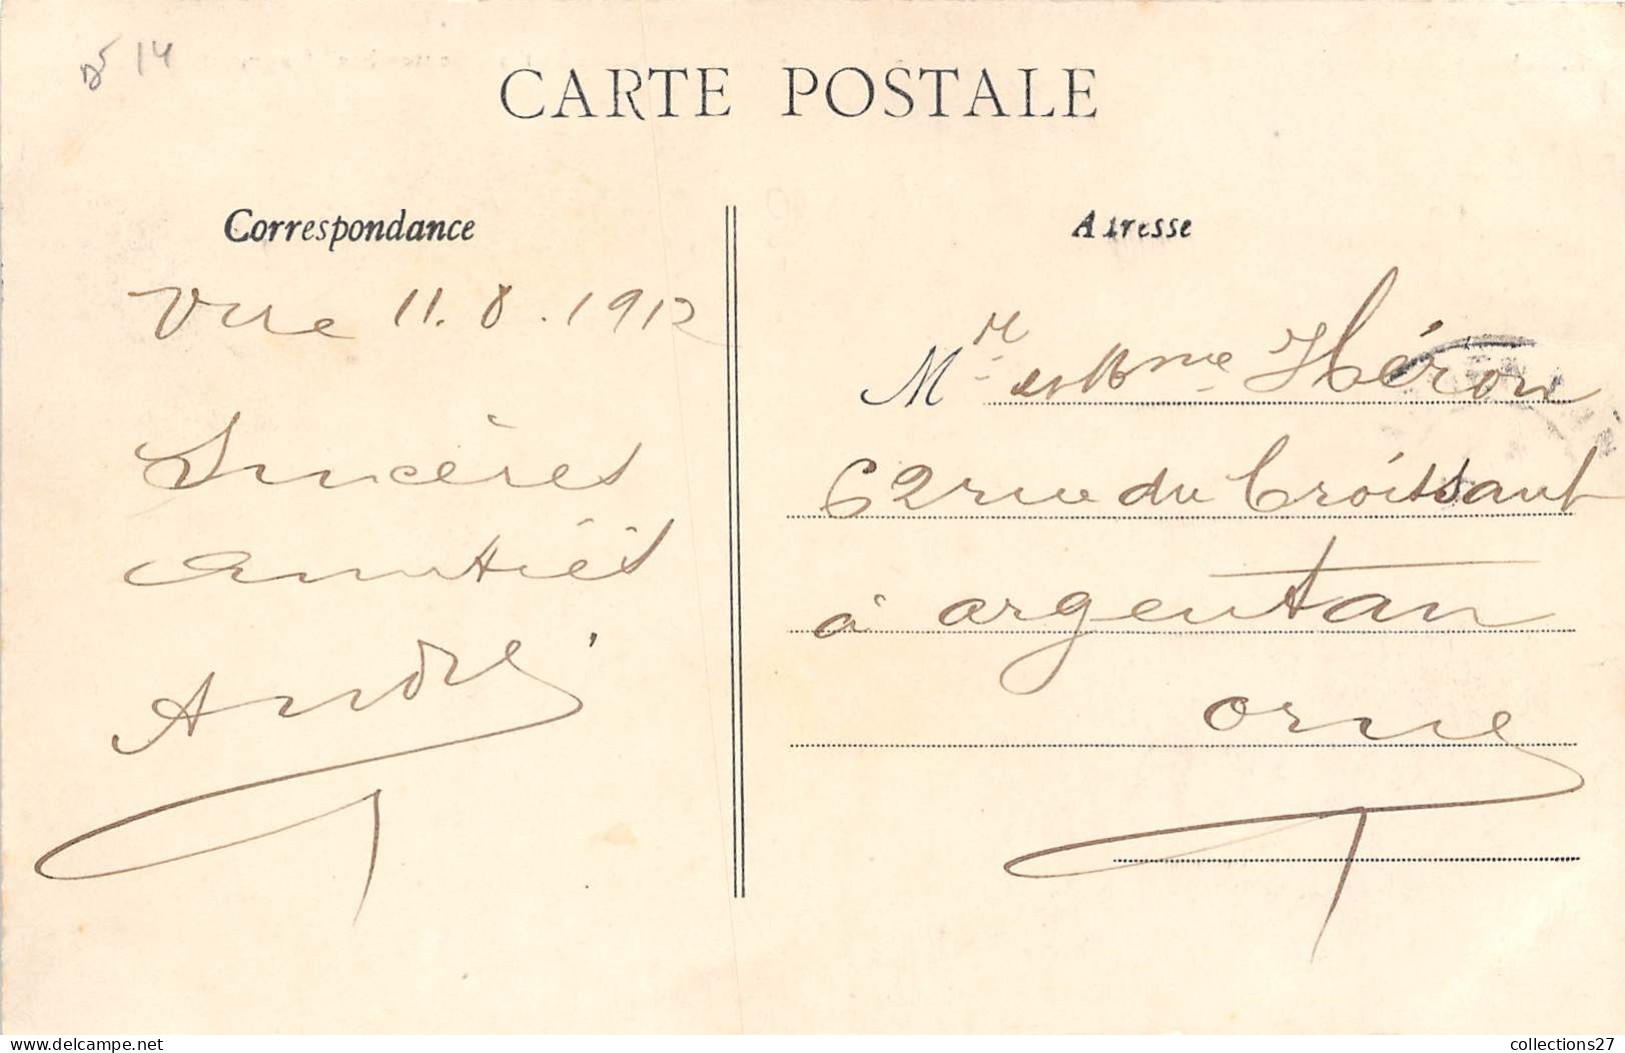 14
CARTE POSTALE
Correspondance
Vire 11.8.1912
Sincères
amitiés
André
Adresse
Mr et Mme Héron
62 rue du Croissant
à argentan
orne
collections27